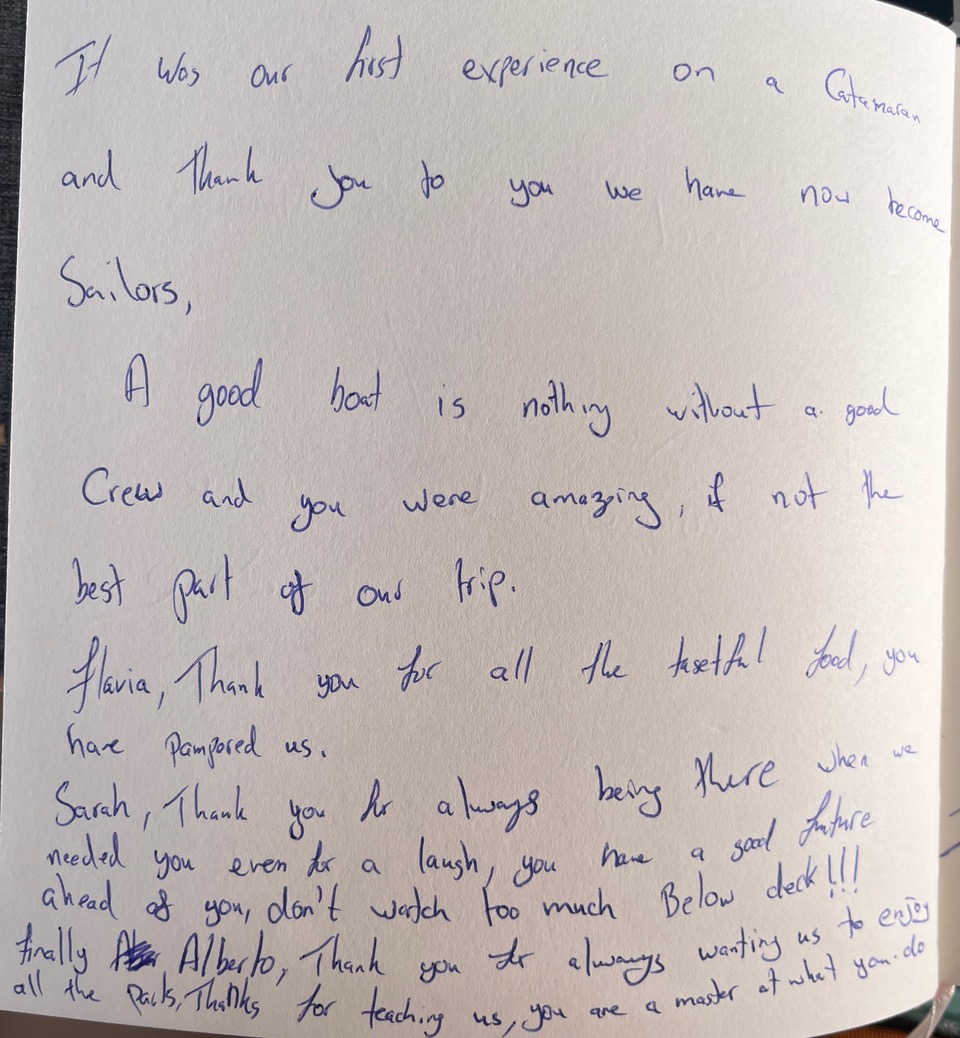 It was our first experience on a Catamaran
and Thank you to you we have now become
Sailors,
A good boat is nothing without a good
Crew and you were amazing, if not the
best part of our trip.
flavia, Thank you for all the tasetful food, you
have Pampored us.
Sarah, Thank you for always being there when we
needed you even for a laugh, you have a good future
ahead of you, don't watch too much Below deck!!!
finally Alberto, Thank you for always wanting us to enjoy
all the Thanks for teaching us, you are a master at what you do